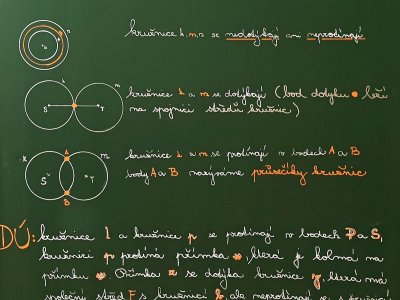 kružnice k, m, n se nedotýkají ani neprotínají
kružnice k a m se dotýkají (bod dotyku • leží
na spojnici středů kružnic)
kružnice k a m se protínají v bodech A a B
body A a B nazýváme průsečíky kružnic
k
m
S
T
k
m
A
B
S
T
DÚ: kružnice l a kružnice p se protínají v bodech P a S,
kružnici p protíná přímka, která je kolmá na
přímku. Přímka se dotýká kružnice, která má
společný střed F s kružnicí, ale neprotínají